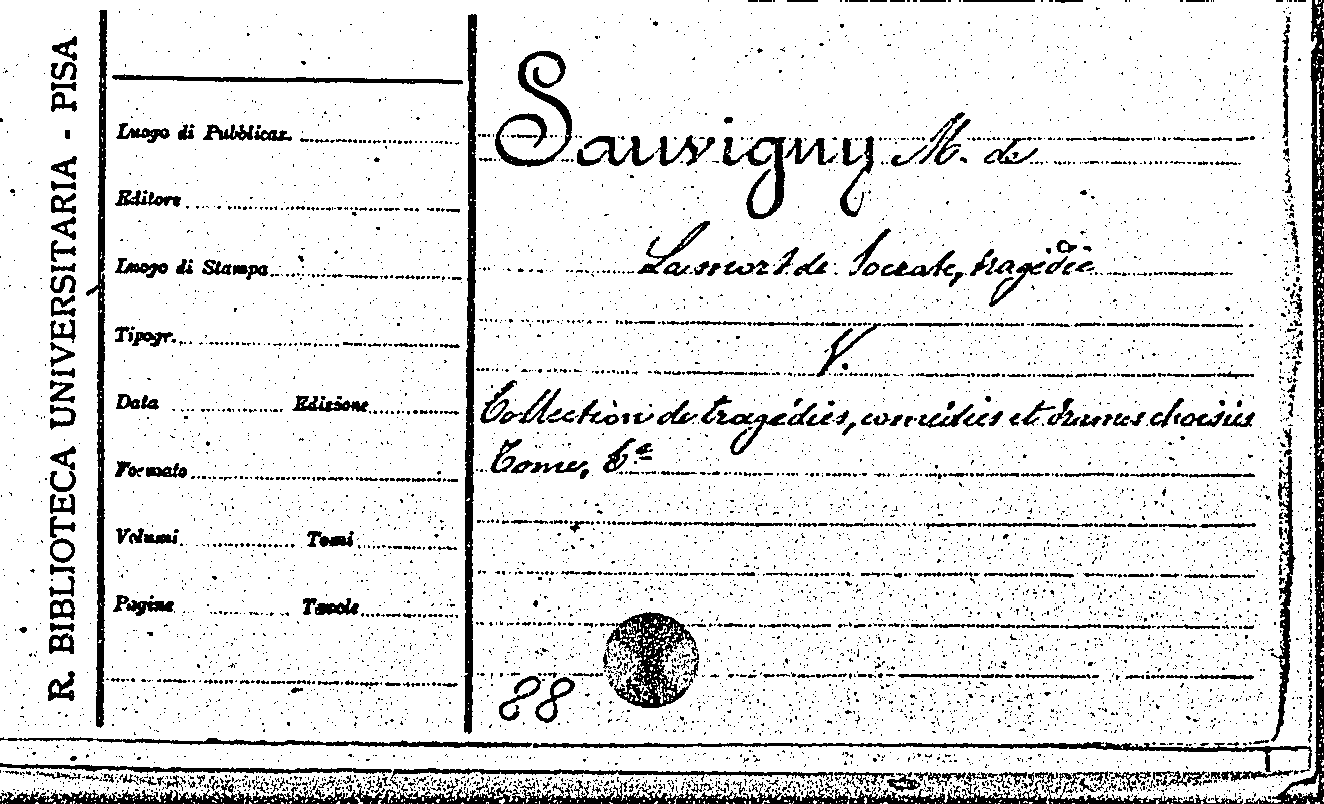 R. BIBLIOTECA UNIVERSITARIA - PISA
Luogo di Pubblicaz.
Editore
Luogo di Stampa
Tipogr.
Data Edizione
Formato
Volumi Tomi
Pagine Tavole
Sauvigny M. de
La mort de Socrate, tragédie
V.
Collection de tragédies, comédies et drames choisies
Tome, 6e
88